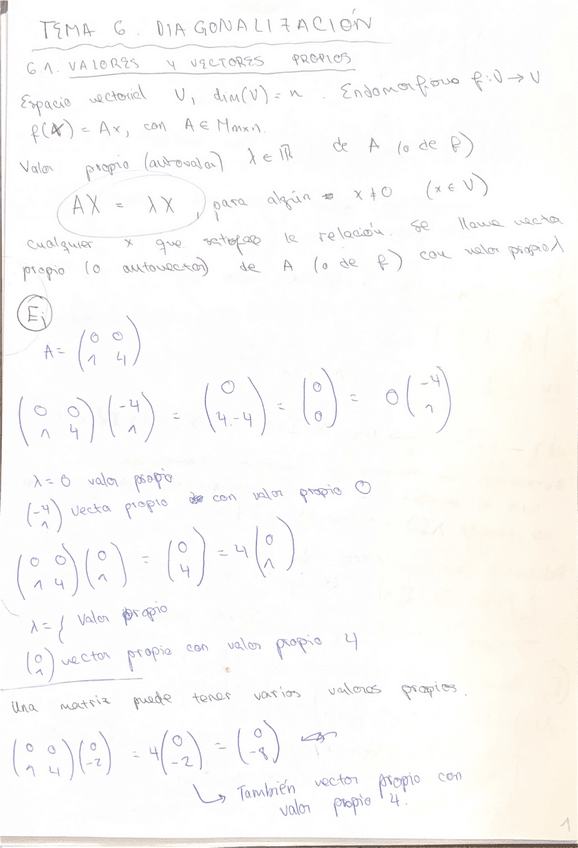 TEMA 6. DIAGONALIZACIÓN
6.1. VALORES Y VECTORES PROPIOS
Espacio vectorial V, dim(V) = n. Endomorfismo f: V → V
f(x) = Ax, con A ∈ Mmxn.
Valor propio (autovalor) λ ∈ ℝ de A (o de f)
AX = λX, para algún x ≠ 0 (x ∈ V)
cualquier x que satisfaga la relación se llama vector
propio (o autovector) de A (o de f) con valor propio λ
Ej
A = (0 0; 1 4)
(0 0; 1 4) (-4; 1) = (0; 4·-4) = (0; 0) = 0 (-4; 1)
λ = 0 valor propio
(-4; 1) vector propio con valor propio 0
(0 0; 1 4) (0; 1) = (0; 4) = 4 (0; 1)
λ = { valor propio
(0; 1) vector propio con valor propio 4
Una matriz puede tener varios valores propios.
(0 0; 1 4) (0; -2) = 4 (0; -2) = (0; -8) ←
↳ También vector propio con
valor propio 4.
1